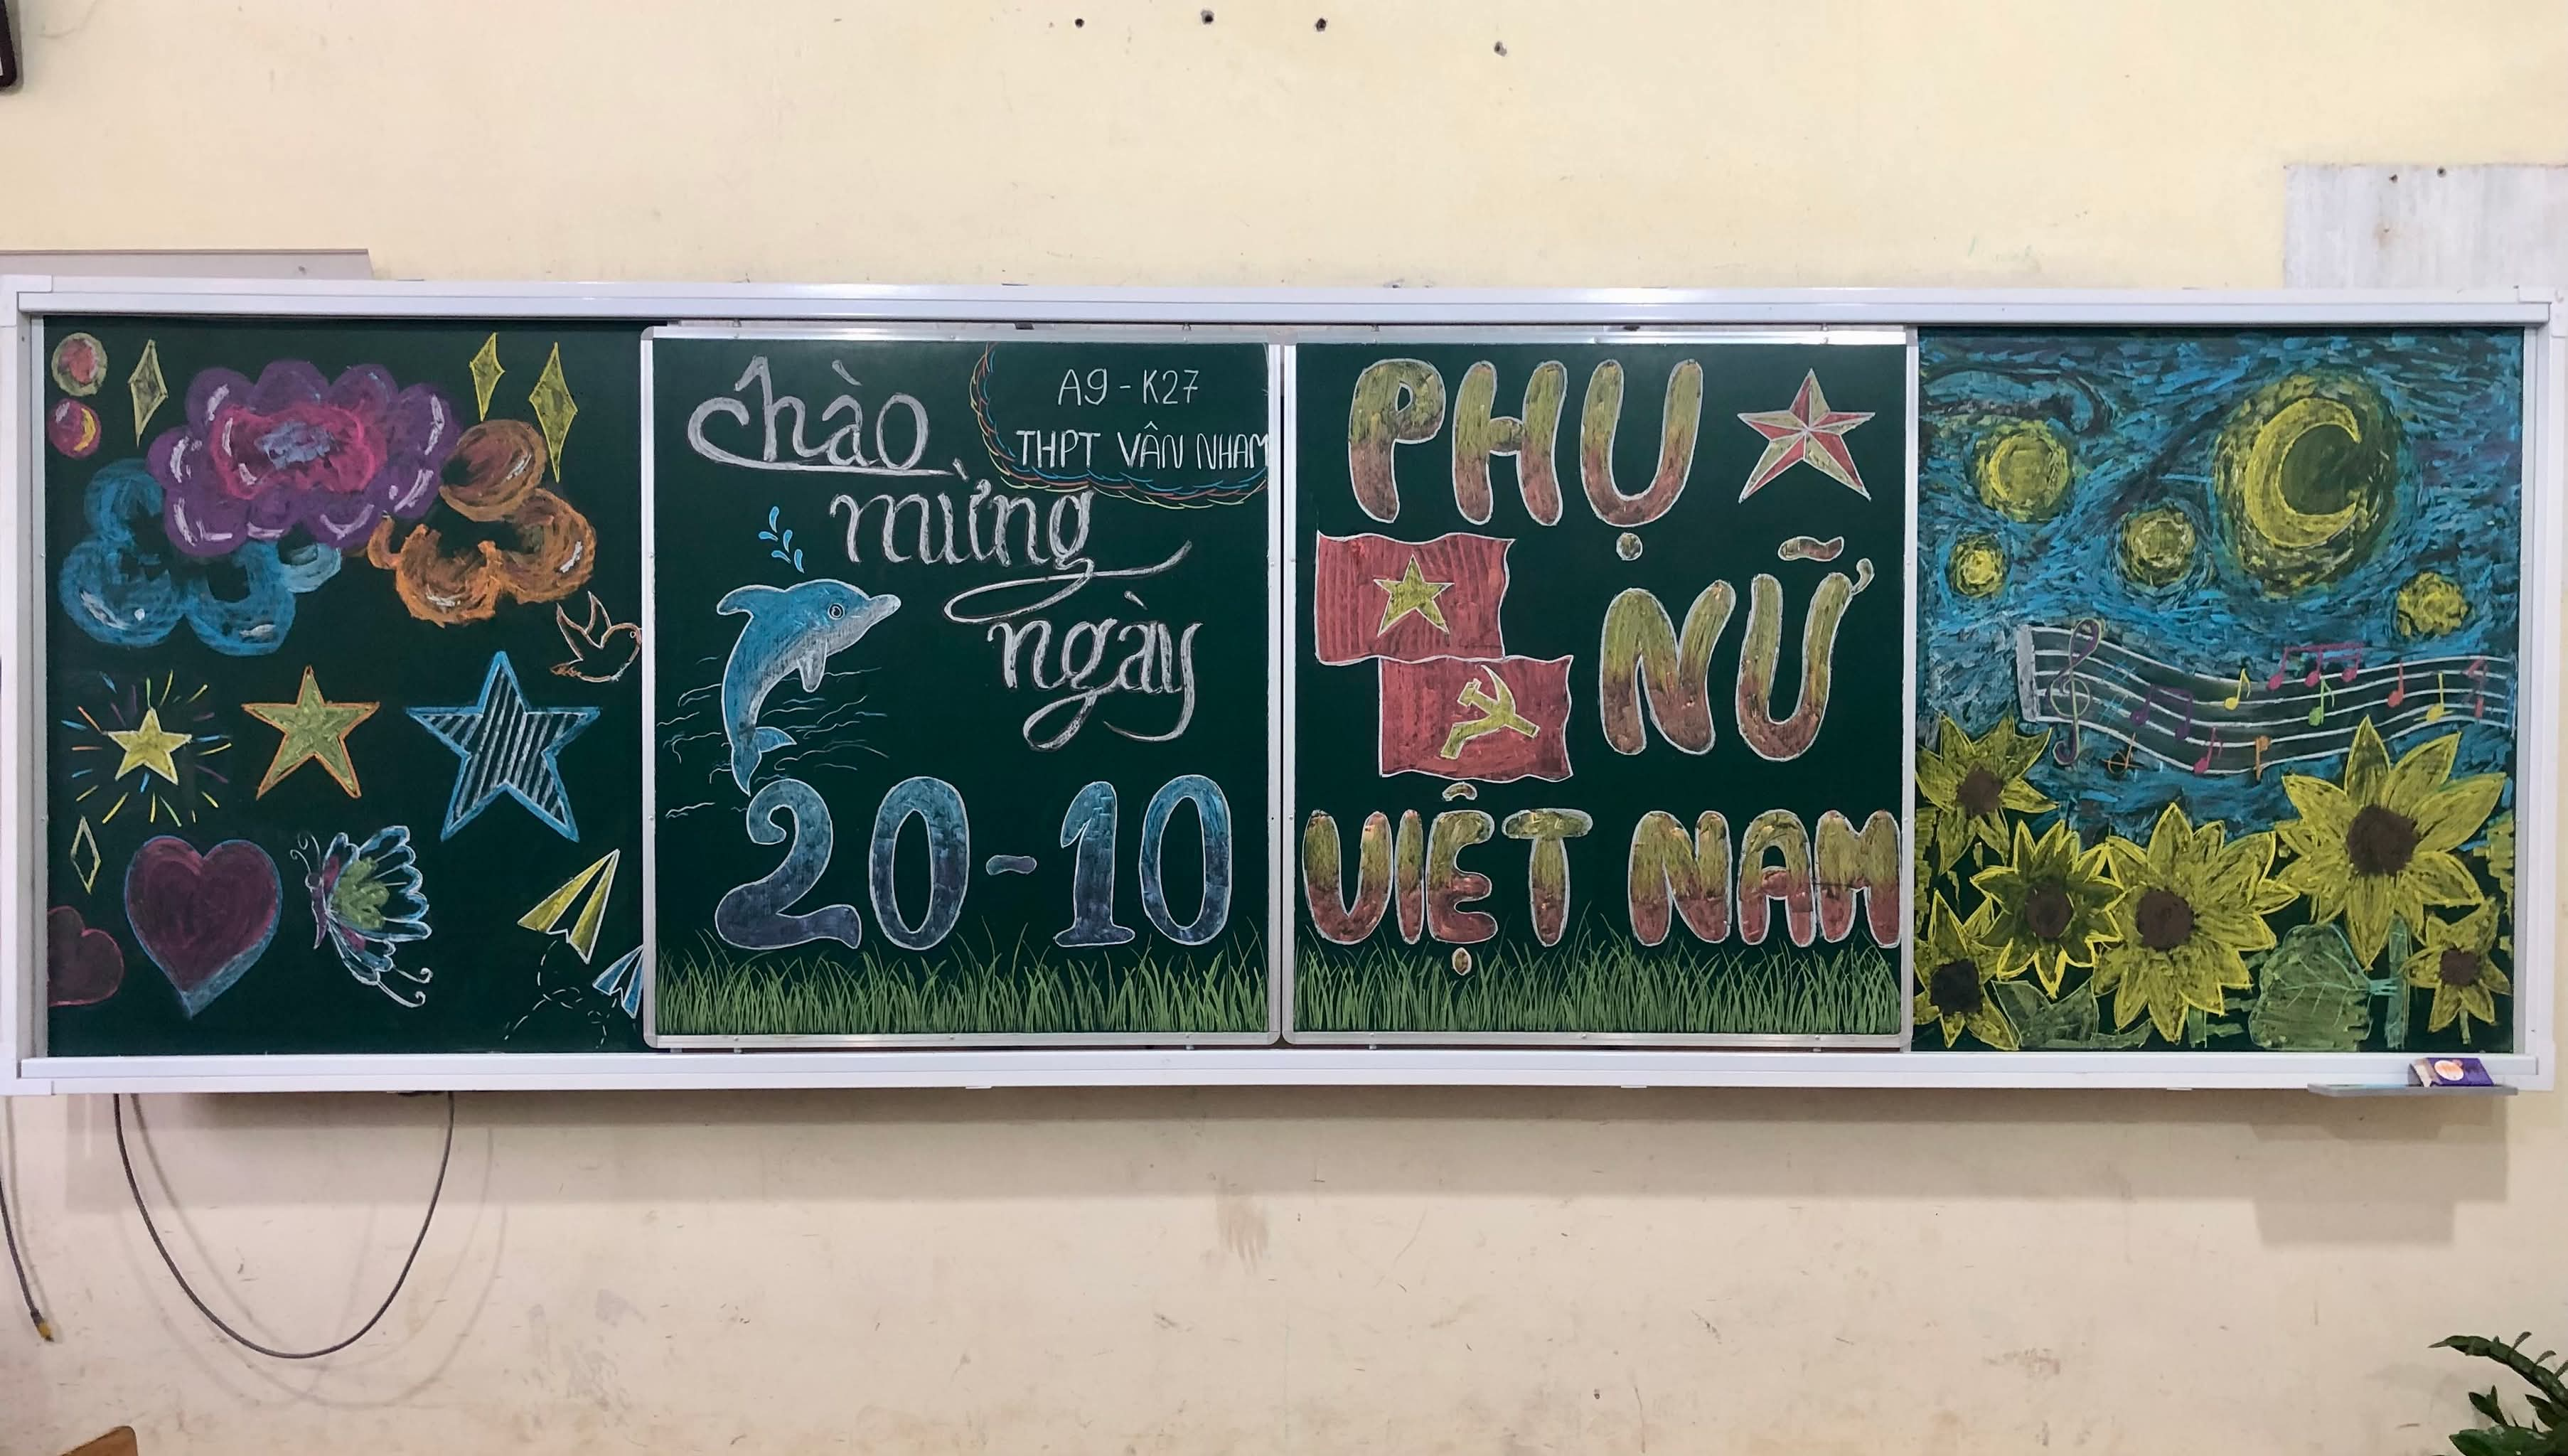 Chào
A9 - K27
THPT VÂN NHAM
mừng
ngày
20-10
PHỤ
NỮ
VIỆT NAM